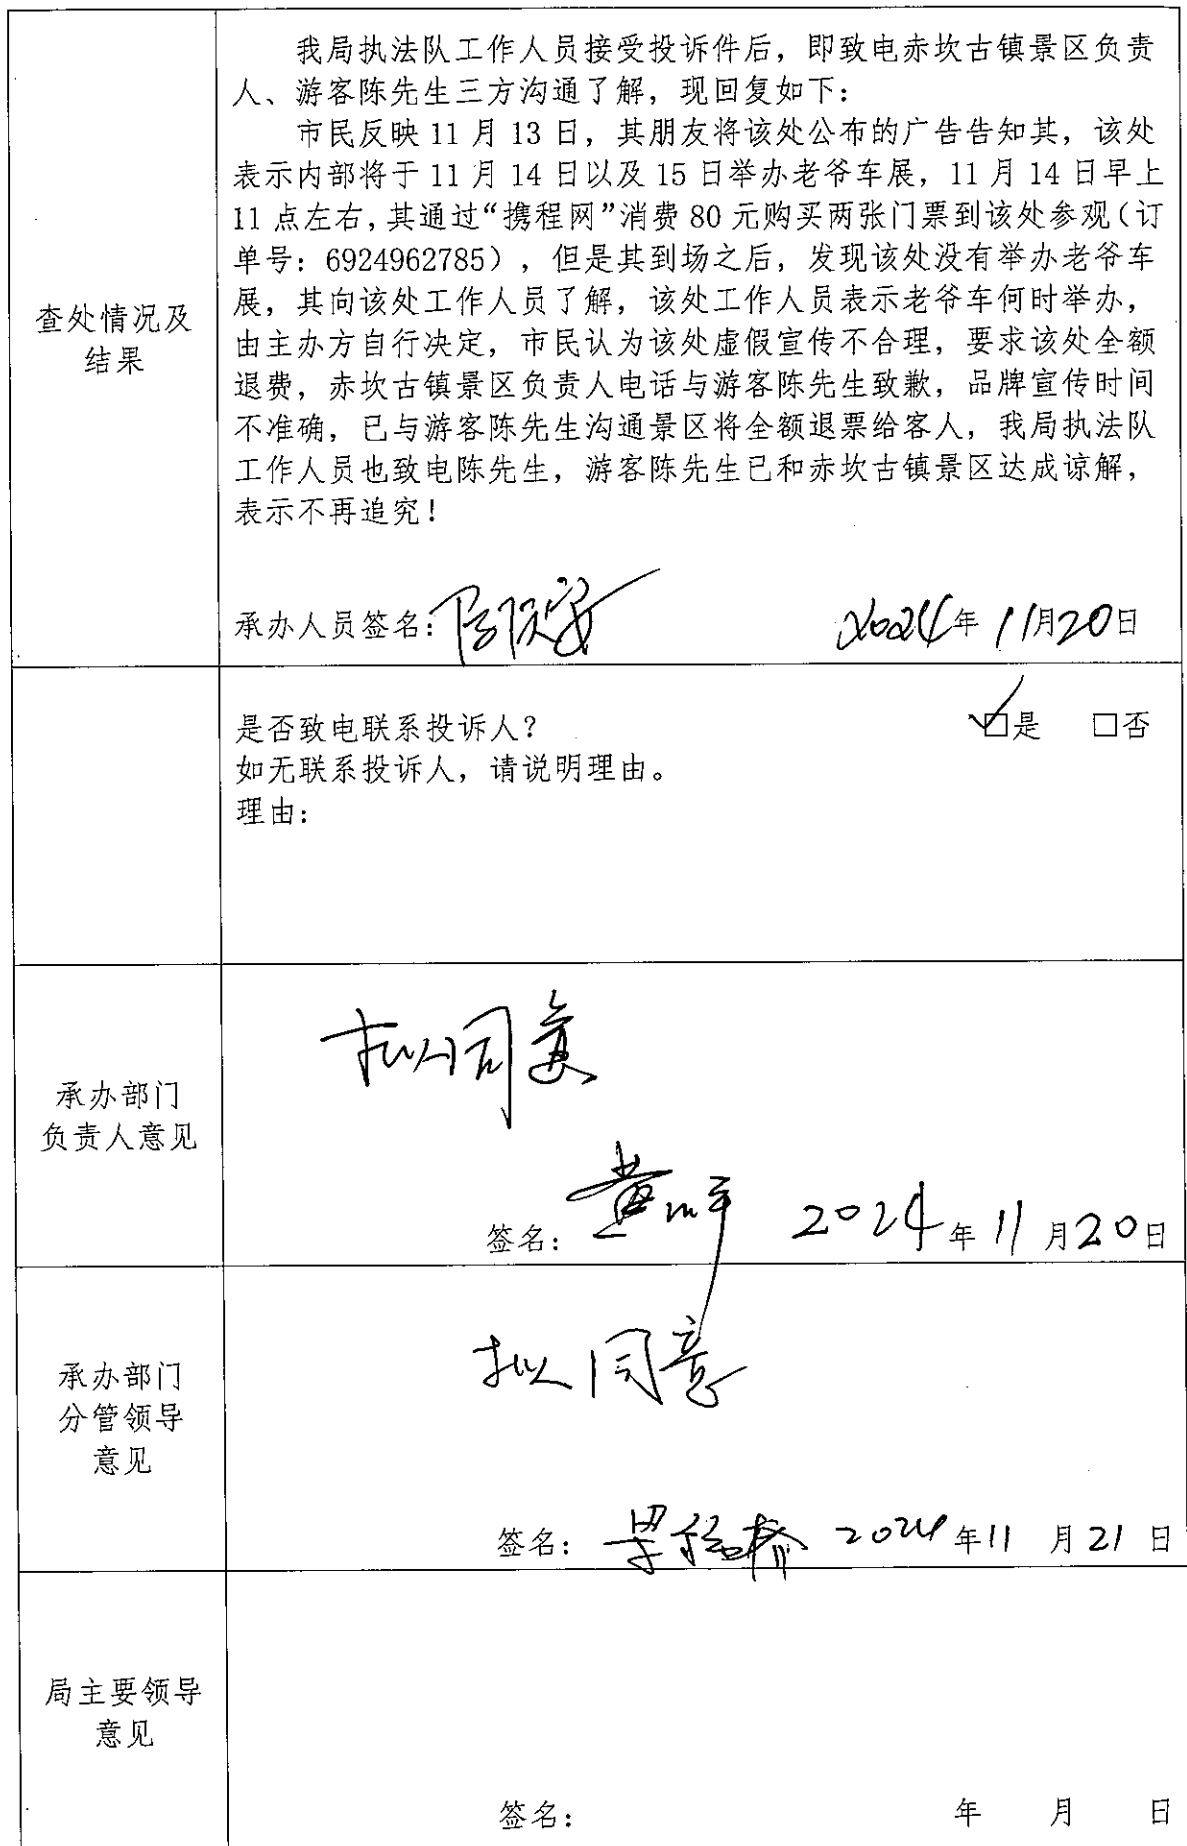 我局执法队工作人员接受投诉件后，即致电赤坎古镇景区负责
人、游客陈先生三方沟通了解，现回复如下：
市民反映 11 月 13 日，其朋友将该处公布的广告告知其，该处
表示内部将于 11 月 14 日以及 15 日举办老爷车展，11 月 14 日早上
11 点左右，其通过“携程网”消费 80 元购买两张门票到该处参观（订
单号：6924962785），但是其到场之后，发现该处没有举办老爷车
展，其向该处工作人员了解，该处工作人员表示老爷车何时举办，
由主办方自行决定，市民认为该处虚假宣传不合理，要求该处全额
退费，赤坎古镇景区负责人电话与游客陈先生致歉，品牌宣传时间
不准确，已与游客陈先生沟通景区将全额退票给客人，我局执法队
工作人员也致电陈先生，游客陈先生已和赤坎古镇景区达成谅解，
表示不再追究！
查处情况及
结果
承办人员签名： 2024年 11月20日
是否致电联系投诉人？ ✓□是 □否
如无联系投诉人，请说明理由。
理由：
承办部门
负责人意见
拟同意
签名： 2024年 11月20日
承办部门
分管领导
意见
拟同意
签名： 2024年11月21日
局主要领导
意见
签名： 年 月 日